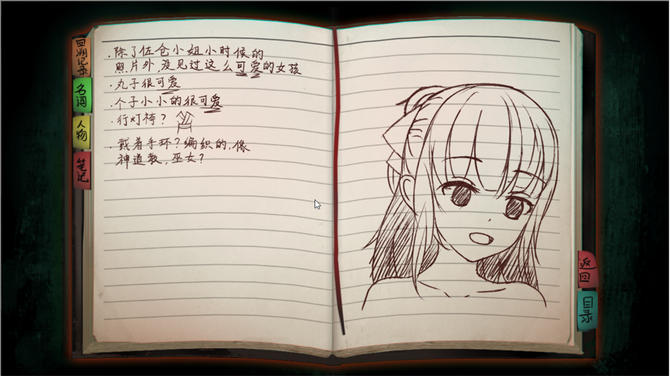 ·除了佐仓小姐小时候的
照片外，没见过这么可爱的女孩
·丸子很可爱
·个子小小的很可爱
·行灯袴？
·戴着手环？编织的，像
神道教，巫女？
回溯记录
名词
人物
笔记
返回
目录